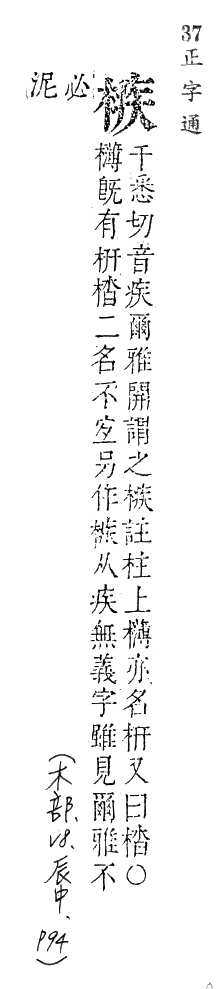 37正字通
槉
千悉切音疾爾雅開謂之槉註柱上欂亦名枅又曰㭼○
欂旣有枅㭼二名不宐另作槉从疾無義字雖見爾雅不
必
泥
(木部、18、辰中、P94)